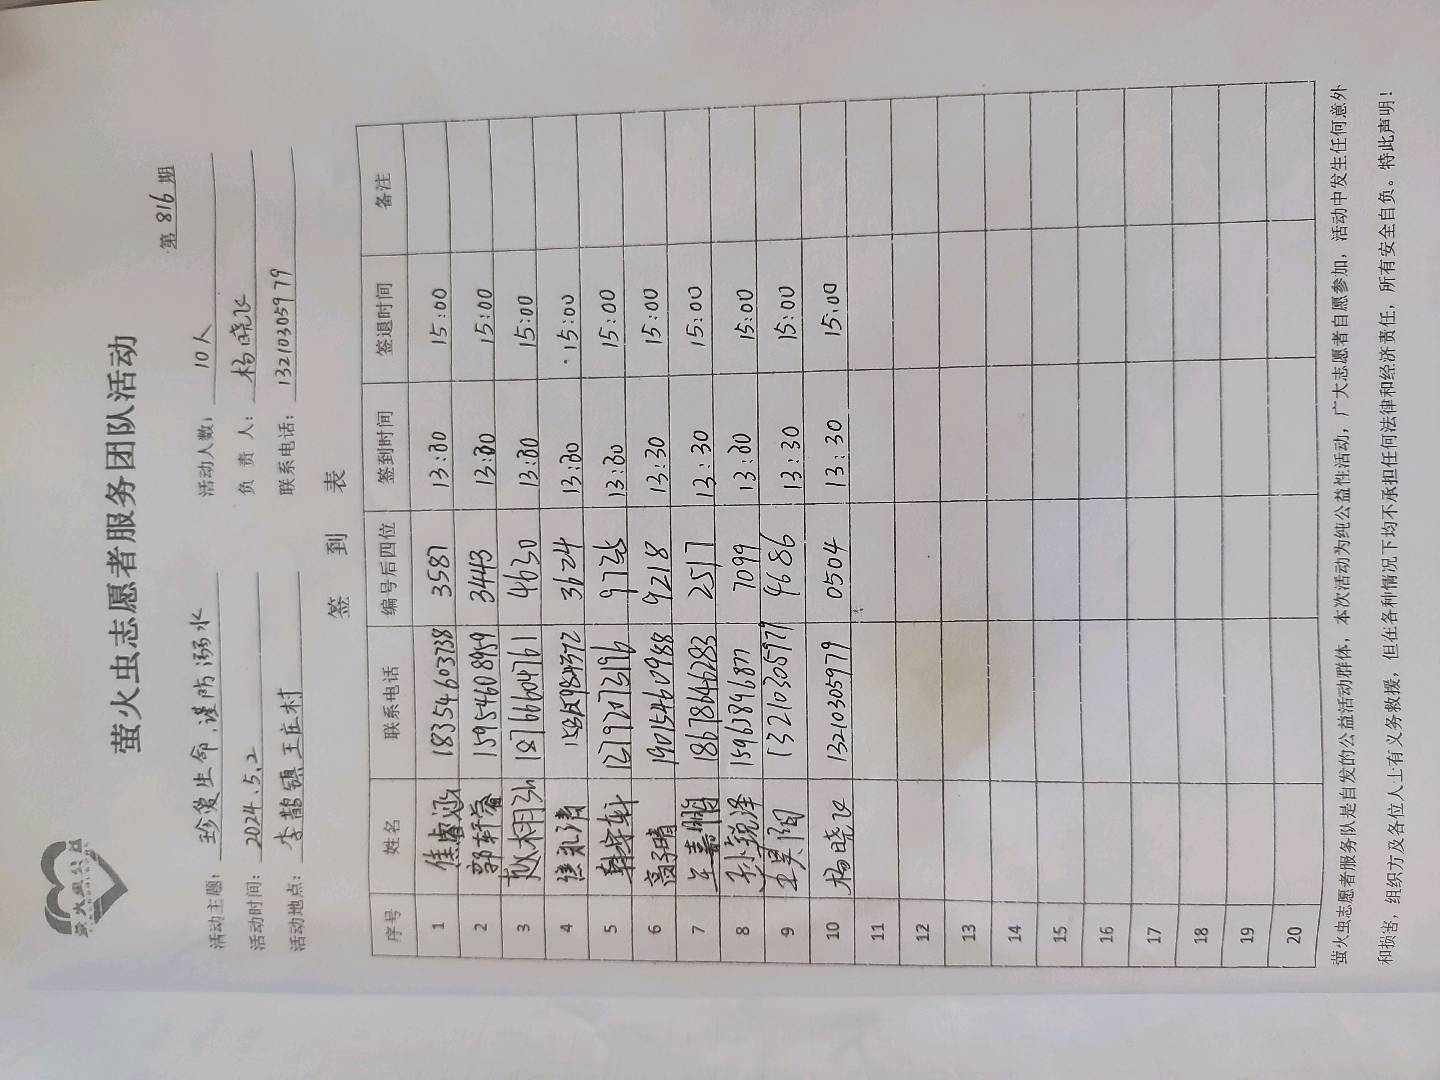 萤火虫公益
萤火虫志愿者服务团队活动
第 816 期
活动主题: 珍爱生命,谨防溺水 活动人数: 10人
活动时间: 2024.5.2 负责人: 杨晓飞
活动地点: 李鹊镇王庄村 联系电话: 13210305979
签到表
序号 姓名 联系电话 编号后四位 签到时间 签退时间 备注
1 焦睿涵 18354603738 3587 13:30 15:00
2 郭轩睿 15954608959 3443 13:30 15:00
3 18766604761 4630 13:30 15:00
4 3624 13:30 15:00
5 13:30 15:00
6 高子晴 19015460988 9218 13:30 15:00
7 18678646283 2517 13:30 15:00
8 孙锐泽 15963846877 7099 13:30 15:00
9 王昊阳 13210305979 4686 13:30 15:00
10 杨晓飞 13210305979 0504 13:30 15:00
11
12
13
14
15
16
17
18
19
20
萤火虫志愿者服务队是自发的公益活动群体，本次活动为纯公益性活动，广大志愿者自愿参加，活动中发生任何意外
和损害，组织方及各位人士有义务救援，但在各种情况下均不承担任何法律和经济责任，所有安全自负。特此声明！